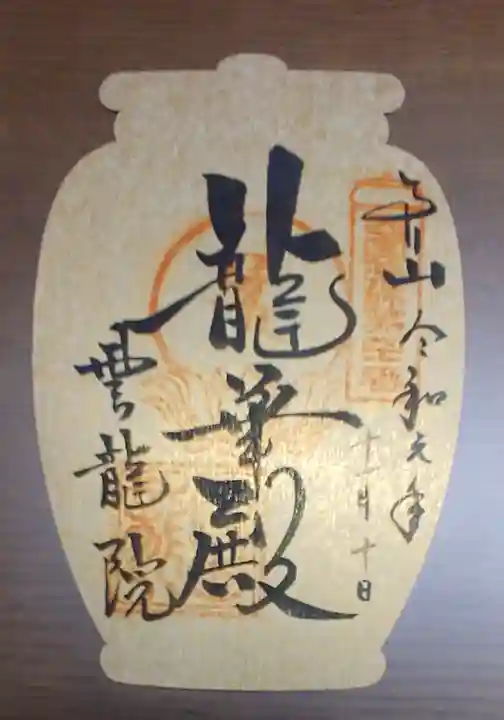 奉拝 令和元年
十一月十日
龍華殿
雲龍院